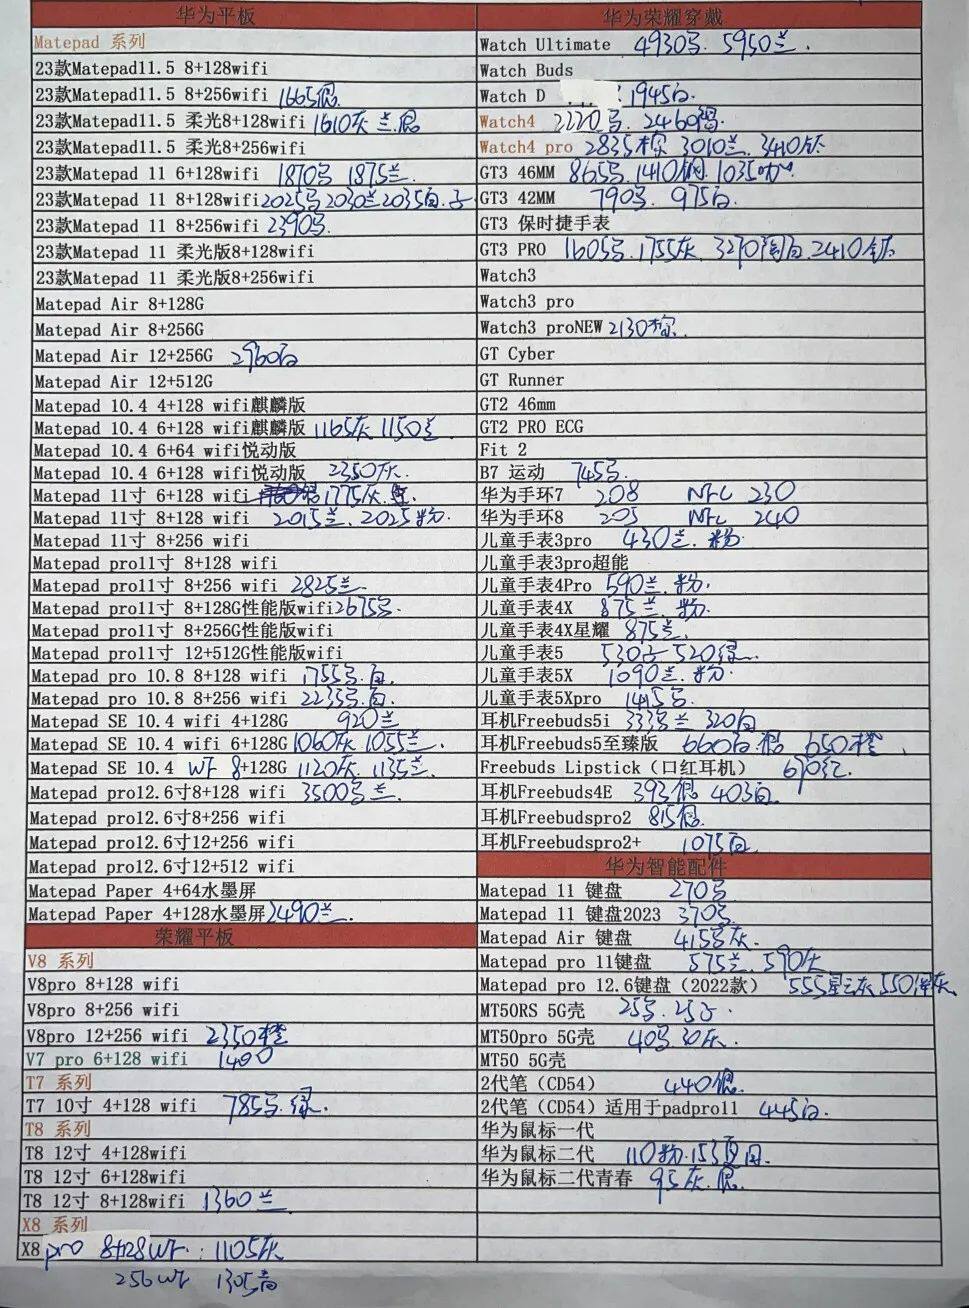 华为平板
Matepad 系列
23款Matepad11.5 8+128wifi
23款Matepad11.5 8+256wifi 1665银.
23款Matepad11.5 柔光8+128wifi 1610灰 兰.银
23款Matepad11.5 柔光8+256wifi
23款Matepad 11 6+128wifi 1870 1875兰.
23款Matepad 11 8+128wifi 2025 2030兰 2035白.
23款Matepad 11 8+256wifi 2390
23款Matepad 11 柔光版8+128wifi
23款Matepad 11 柔光版8+256wifi
Matepad Air 8+128G
Matepad Air 8+256G
Matepad Air 12+256G 2960白
Matepad Air 12+512G
Matepad 10.4 4+128 wifi麒麟版
Matepad 10.4 6+128 wifi麒麟版 1165灰 1150兰.
Matepad 10.4 6+64 wifi悦动版
Matepad 10.4 6+128 wifi悦动版 2350灰.
Matepad 11寸 6+128 wifi 1775灰.
Matepad 11寸 8+128 wifi 2015兰. 2025粉.
Matepad 11寸 8+256 wifi
Matepad pro11寸 8+128 wifi
Matepad pro11寸 8+256 wifi 2825兰
Matepad pro11寸 8+128G性能版wifi 2675
Matepad pro11寸 8+256G性能版wifi
Matepad pro11寸 12+512G性能版wifi
Matepad pro 10.8 8+128 wifi 1755 白.
Matepad pro 10.8 8+256 wifi 2235 白.
Matepad SE 10.4 wifi 4+128G 920兰
Matepad SE 10.4 wifi 6+128G 1060灰 1055兰.
Matepad SE 10.4 wf 8+128G 1120灰. 1135兰.
Matepad pro12.6寸8+128 wifi 3500 兰.
Matepad pro12.6寸8+256 wifi
Matepad pro12.6寸12+256 wifi
Matepad pro12.6寸12+512 wifi
Matepad Paper 4+64水墨屏
Matepad Paper 4+128水墨屏 2490兰.
荣耀平板
V8 系列
V8pro 8+128 wifi
V8pro 8+256 wifi
V8pro 12+256 wifi 2350橙
V7 pro 6+128 wifi 1400
T7 系列
T7 10寸 4+128 wifi 785 绿.
T8 系列
T8 12寸 4+128wifi
T8 12寸 6+128wifi
T8 12寸 8+128wifi 1360兰
X8 系列
X8 pro 8+128wf. 1105灰
256wf 1305
华为荣耀穿戴
Watch Ultimate 4930 5950兰.
Watch Buds
Watch D 1945白.
Watch4 2220 2460
Watch4 pro 2835棕 3010兰. 3410钛
GT3 46MM 865 1410钢 1035
GT3 42MM 790 975白.
GT3 保时捷手表
GT3 PRO 1605 1755灰. 3270陶白. 2410钛
Watch3
Watch3 pro
Watch3 proNEW 2130棕.
GT Cyber
GT Runner
GT2 46mm
GT2 PRO ECG
Fit 2
B7 运动 745
华为手环7 208 NFC 230
华为手环8 205 NFC 240
儿童手表3pro 430兰. 粉.
儿童手表3pro超能
儿童手表4Pro 590兰. 粉.
儿童手表4X 875兰. 粉.
儿童手表4X星耀 875兰.
儿童手表5 530 520绿.
儿童手表5X 1090兰. 粉.
儿童手表5Xpro 1415
耳机Freebuds5i 333 兰 320白
耳机Freebuds5至臻版 660白. 650橙
Freebuds Lipstick（口红耳机） 670红.
耳机Freebuds4E 393银 403白.
耳机Freebudspro2 815银.
耳机Freebudspro2+ 1075白.
华为智能配件
Matepad 11 键盘 270
Matepad 11 键盘2023 370
Matepad Air 键盘 415 灰.
Matepad pro 11键盘 575兰. 590灰
Matepad pro 12.6键盘（2022款） 555星云灰 550 灰.
MT50RS 5G壳 25 25
MT50pro 5G壳 40 30灰.
MT50 5G壳
2代笔（CD54） 440银.
2代笔（CD54）适用于padpro11 445白.
华为鼠标一代
华为鼠标二代 110粉. 153 白.
华为鼠标二代青春 95灰. 银.